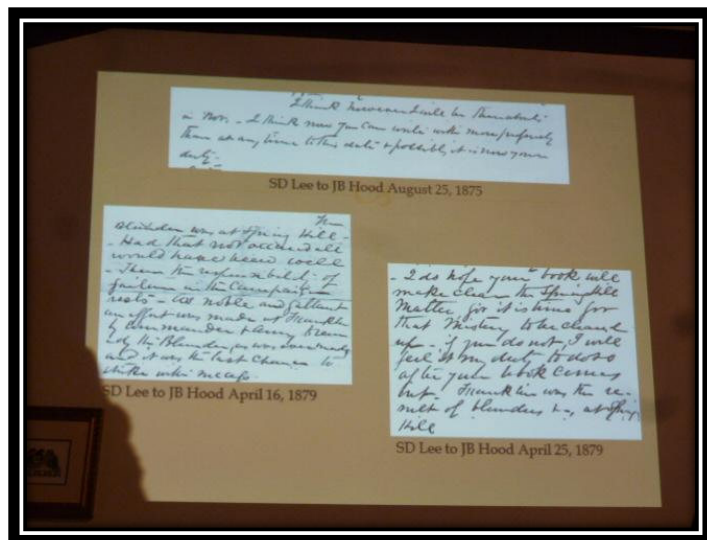 I think now you can write with more propriety
than at any time to this date & possibly it is now your
duty.
SD Lee to JB Hood August 25, 1875
The
blunder was at Spring Hill -
- Had that not occurred all
would have been well
- There the responsibility of
failure in the Campaign
rests - as noble and gallant
an effort was made at Franklin
by commander & army to rem
edy the blunder, as was ever made
and it was the last chance to
strike with success.
SD Lee to JB Hood April 16, 1879
- I do hope your book will
make clear the Spring Hill
Matter, for it is time for
that Mistery to be cleared
up - if you do not, I will
feel it my duty to do so
after your book comes
out - Franklin was the re-
sult of blunders at Spring
Hill
SD Lee to JB Hood April 25, 1879